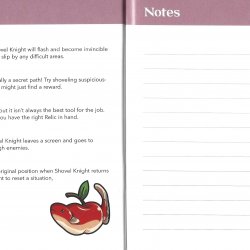 vel Knight will flash and become invincible
slip by any difficult areas.
ally a secret path! Try shoveling suspicious-
might just find a reward.
out it isn't always the best tool for the job.
you have the right Relic in hand.
Knight leaves a screen and goes to
gh enemies.
original position when Shovel Knight returns
nt to reset a situation.
Notes